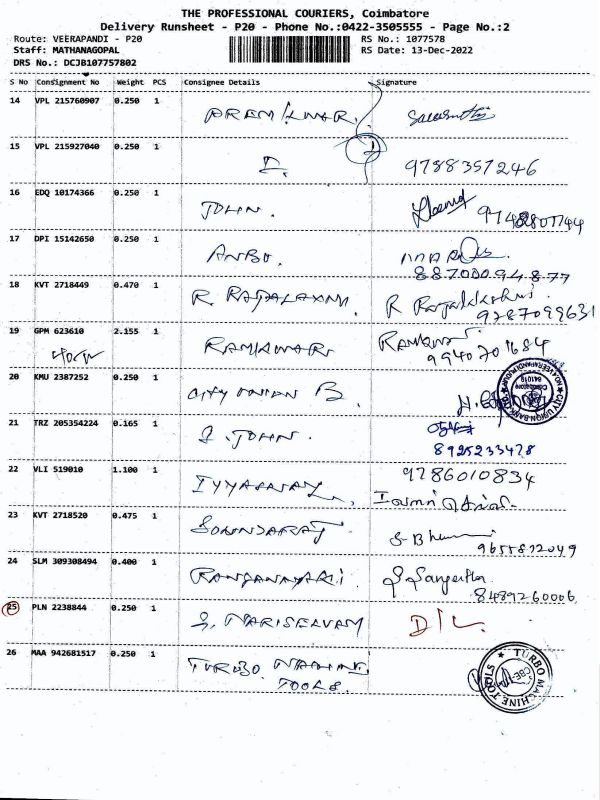 THE PROFESSIONAL COURIERS, Coimbatore
Delivery Runsheet - P20 - Phone No.:0422-3505555 - Page No.:2
Route: VEERAPANDI - P20 RS No.: 1077578
Staff: MATHANAGOPAL RS Date: 13-Dec-2022
DRS No.: DCJB107757802
S No Consignment No Weight PCS Consignee Details Signature
14 VPL 215760907 0.250 1
15 VPL 215927040 0.250 1 I. 9788357246
16 EDQ 10174366 0.250 1 JOHN.
17 DPI 15142650 0.250 1 ANBU.
88700094877
18 KVT 2718449 0.470 1 R. RAJALAXMI R Rajalakshmi
9287099631
19 GPM 623610 2.155 1 RAMKUMAR Ramkumar
9940701684
20 KMU 2387252 0.250 1 CITY UNION B.
CITY UNION BANK
21 TRZ 205354224 0.165 1 J. JOHN.
8925233478
22 VLI 519010 1.100 1 9786010834
23 KVT 2718520 0.475 1 SOUNDARAJ
9655872049
24 SLM 309308494 0.400 1 RANGANAYAKI S Sangeetha
8489260006
25 PLN 2238844 0.250 1 S. MARISELVAM D/L
26 MAA 942681517 0.250 1 TURBO MACHINE
TOOLS.
★ TURBO MACHINE TOOLS
CBE